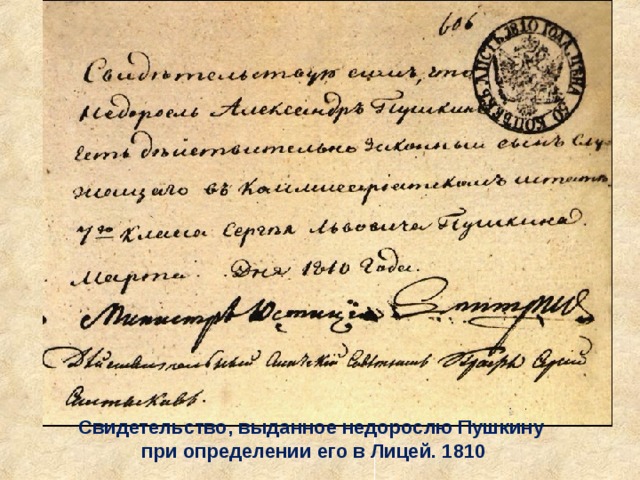 606
ЛИСТЪ 1810 ГОДА ЦѢНА 50 КОПѢЕКЪ
Свидѣтельствую симъ, что
Недоросль Александръ Пушкинъ
есть дѣйствительно законный сынъ Слу-
жащаго въ Коммисаріатскомъ штатѣ
7го класса Сергѣя Львовича Пушкина.
Марта Дня 1810 Года.
Министръ Юстиціи Дмитріевъ
Дѣйствительный Совѣтникъ Графъ
Салтыковъ.
Свидетельство, выданное недорослю Пушкину
при определении его в Лицей. 1810